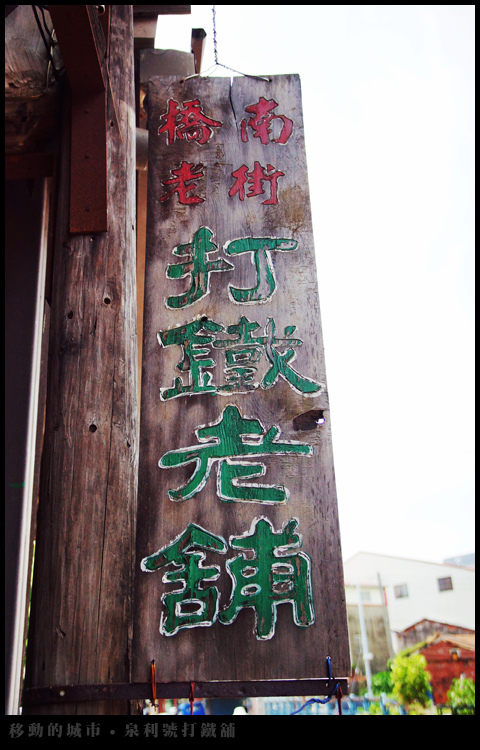 橋南
老街
打鐵老舖
移動的城市 • 泉利號打鐵舖